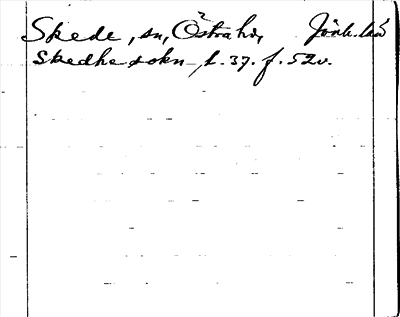 Skede, sn, Östra hd, Jönk. län
Skedhe sokn, t. 37. f. 52v.